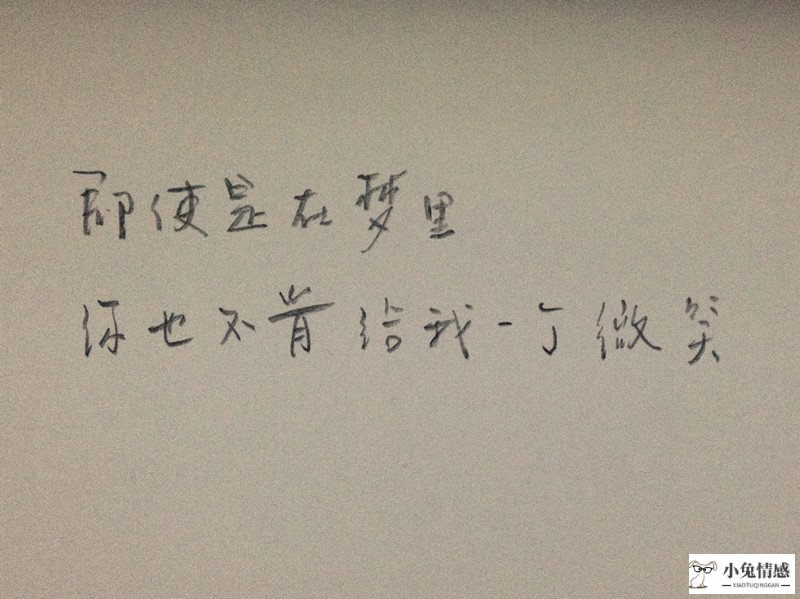 即使是在梦里
你也不肯给我一个微笑
小兔情感
XIAOTUQINGGAN